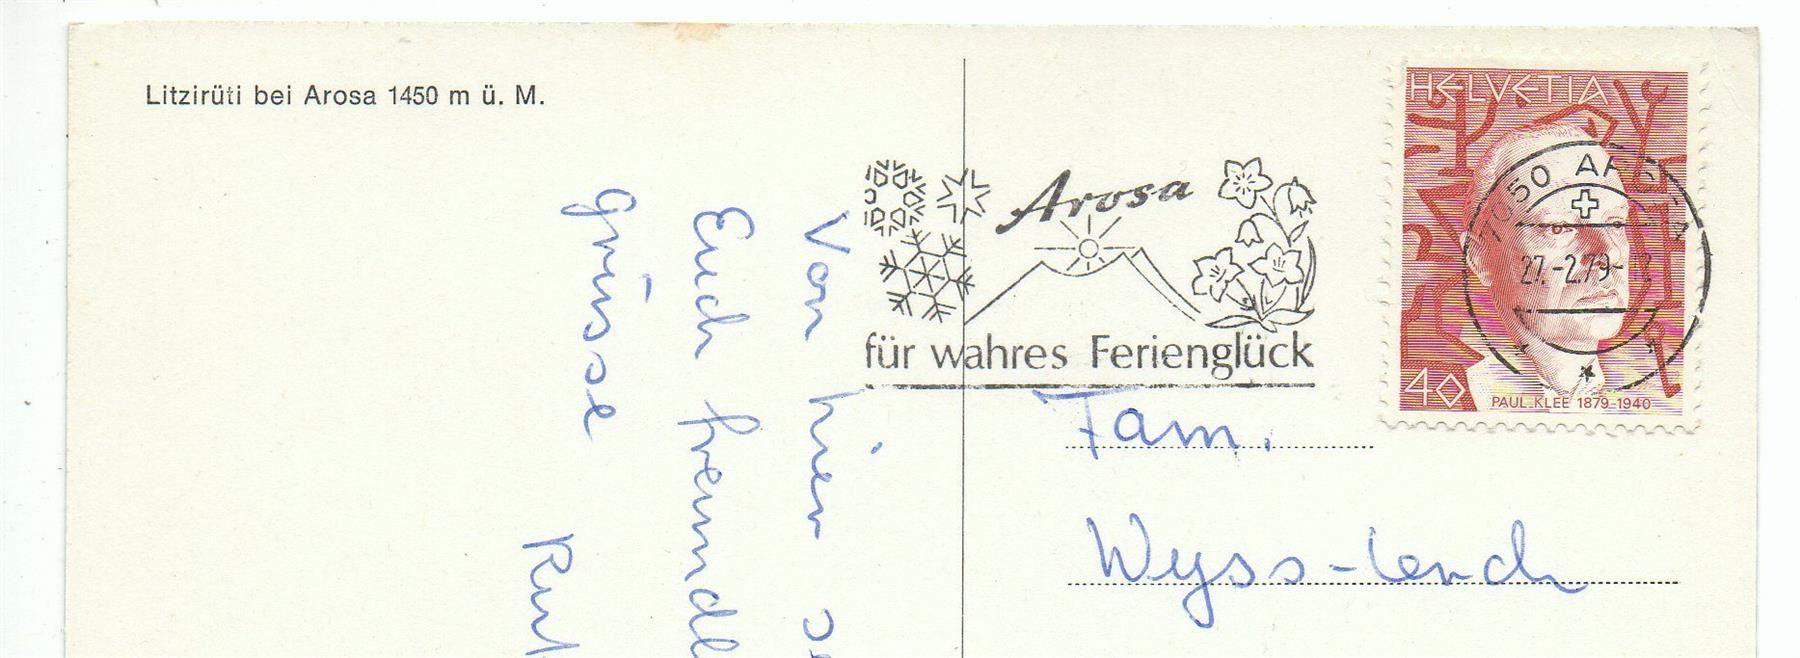 Litzirüti bei Arosa 1450 m ü. M.
Von hier
Euch
grüsse
Arosa
für wahres Ferienglück
HELVETIA
40
PAUL KLEE 1879-1940
7050 AROSA
27.-2.79-
Fam.
Wyss-